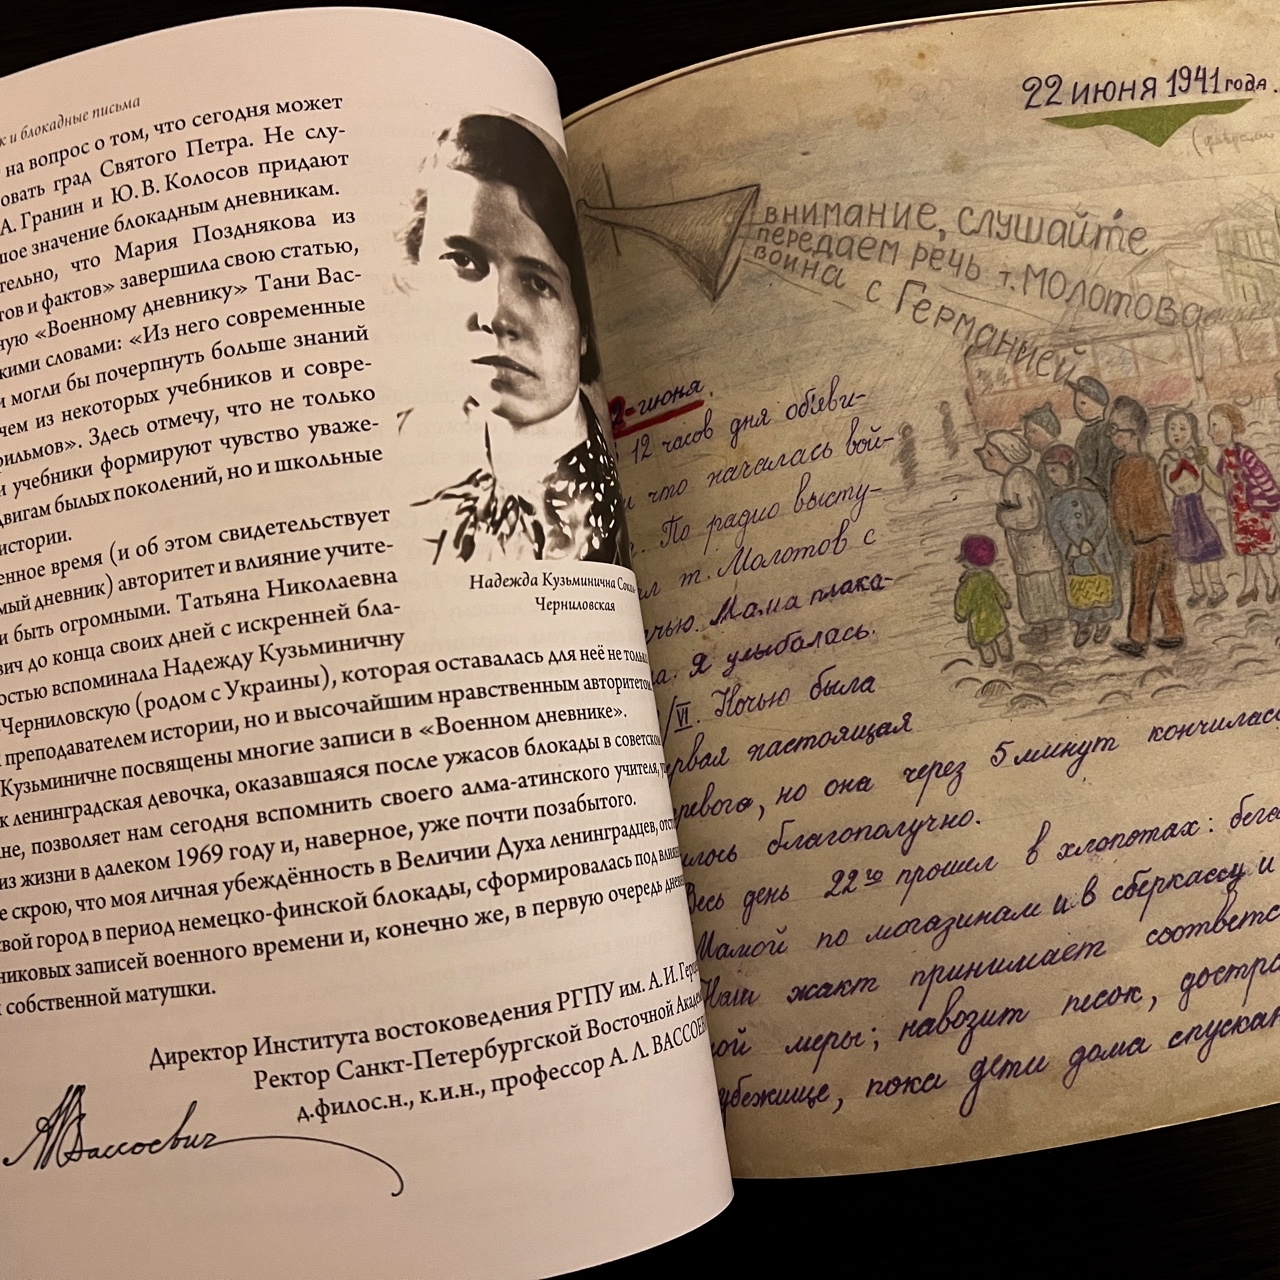 к и блокадные письма
на вопрос о том, что сегодня может
овать град Святого Петра. Не слу-
А. Гранин и Ю. В. Колосов придают
шое значение блокадным дневникам.
тельно, что Мария Позднякова из
тов и фактов» завершила свою статью,
ную «Военному дневнику» Тани Вас-
кими словами: «Из него современные
и могли бы почерпнуть больше знаний
чем из некоторых учебников и совре-
фильмов». Здесь отмечу, что не только
и учебники формируют чувство уваже-
двигам былых поколений, но и школьные
истории.
енное время (и об этом свидетельствует
мый дневник) авторитет и влияние учите-
и быть огромными. Татьяна Николаевна
вич до конца своих дней с искренней бла-
остью вспоминала Надежду Кузьминичну
Черниловскую (родом с Украины), которая оставалась для неё не только
преподавателем истории, но и высочайшим нравственным авторитетом
Кузьминичне посвящены многие записи в «Военном дневнике».
к ленинградская девочка, оказавшаяся после ужасов блокады в советском
не, позволяет нам сегодня вспомнить своего алма-атинского учителя, у
из жизни в далеком 1969 году и, наверное, уже почти позабытого.
е скрою, что моя личная убеждённость в Величии Духа ленинградцев, отст
свой город в период немецко-финской блокады, сформировалась под влиян
никовых записей военного времени и, конечно же, в первую очередь дневн
собственной матушки.
Директор Института востоковедения РГПУ им. А. И. Герц
Ректор Санкт-Петербургской Восточной Акаде
д.филос.н., к.и.н., профессор А. Л. ВАССОЕВ
АВассоевич
Надежда Кузьминична Сокал-
Черниловская
22 июня 1941 года.
внимание, слушайте
передаем речь т. Молотова
война с Германией
2-июня.
12 часов дня объяви-
что началась вой-
По радио высту-
л т. Молотов с
ечью. Мама плака-
а. Я улыбалась.
/VI. Ночью была
ервая настоящая
ревога, но она через 5 минут кончилась
илось благополучно.
Весь день 22го прошел в хлопотах: бега
Мамой по магазинам и в сберкассу и
Наш жакт принимает соответс
ой меры; навозит песок, достра
убежище, пока дети дома спускаю